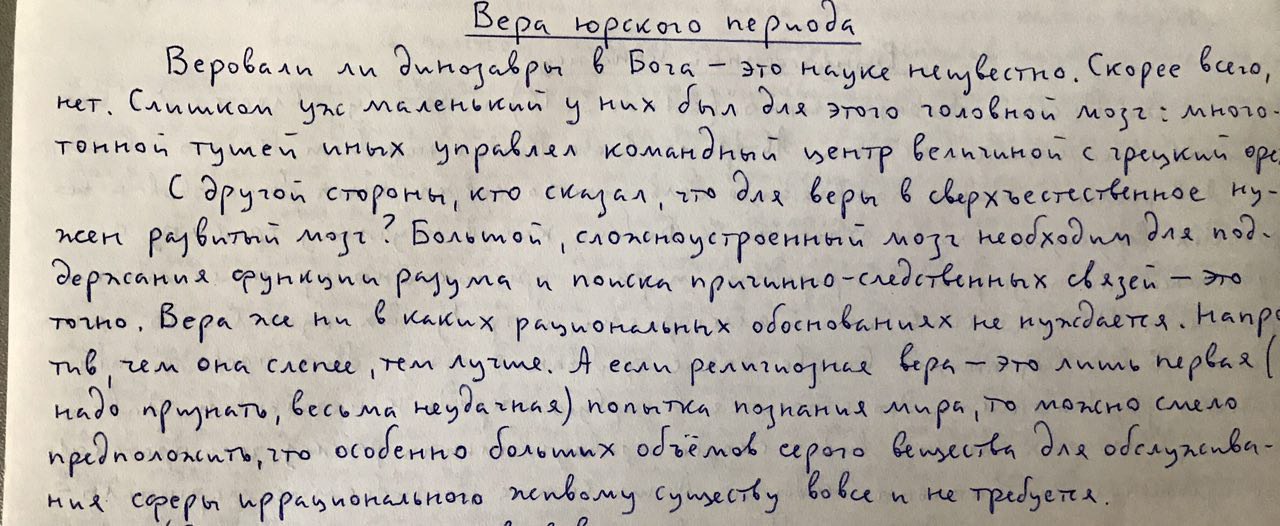 Вера юрского периода
Веровали ли динозавры в Бога – это науке неизвестно. Скорее всего,
нет. Слишком уж маленький у них был для этого головной мозг: много-
тонной тушей иных управлял командный центр величиной с грецкий оре
С другой стороны, кто сказал, что для веры в сверхъестественное ну-
жен развитый мозг? Большой, сложноустроенный мозг необходим для под-
держания функции разума и поиска причинно-следственных связей – это
точно. Вера же ни в каких рациональных обоснованиях не нуждается. Напро
тив, чем она слепее, тем лучше. А если религиозная вера – это лишь первая (
надо признать, весьма неудачная) попытка познания мира, то можно смело
предположить, что особенно больших объёмов серого вещества для обслужива-
ния сферы иррационального живому существу вовсе и не требуется.